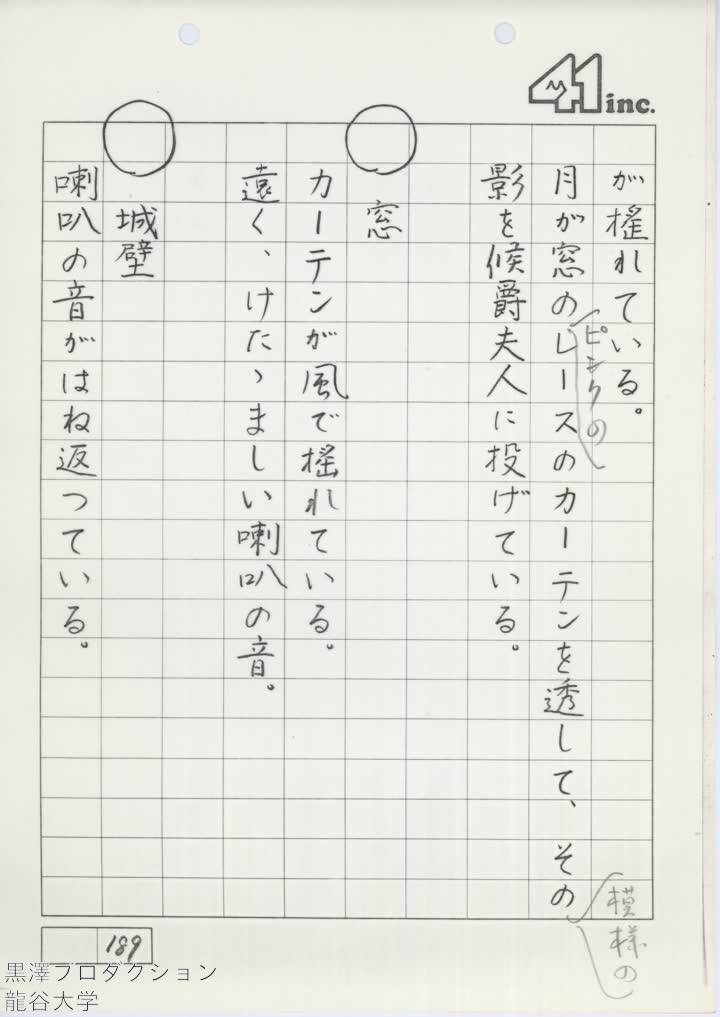 41 inc.
が揺れている。
ピンクの
月が窓のレースのカーテンを透して、その
模様の
影を候爵夫人に投げている。
○ 窓
カーテンが風で揺れている。
遠く、けたゝましい喇叭の音。
○ 城壁
喇叭の音がはね返つている。
189
黒澤プロダクション
龍谷大学